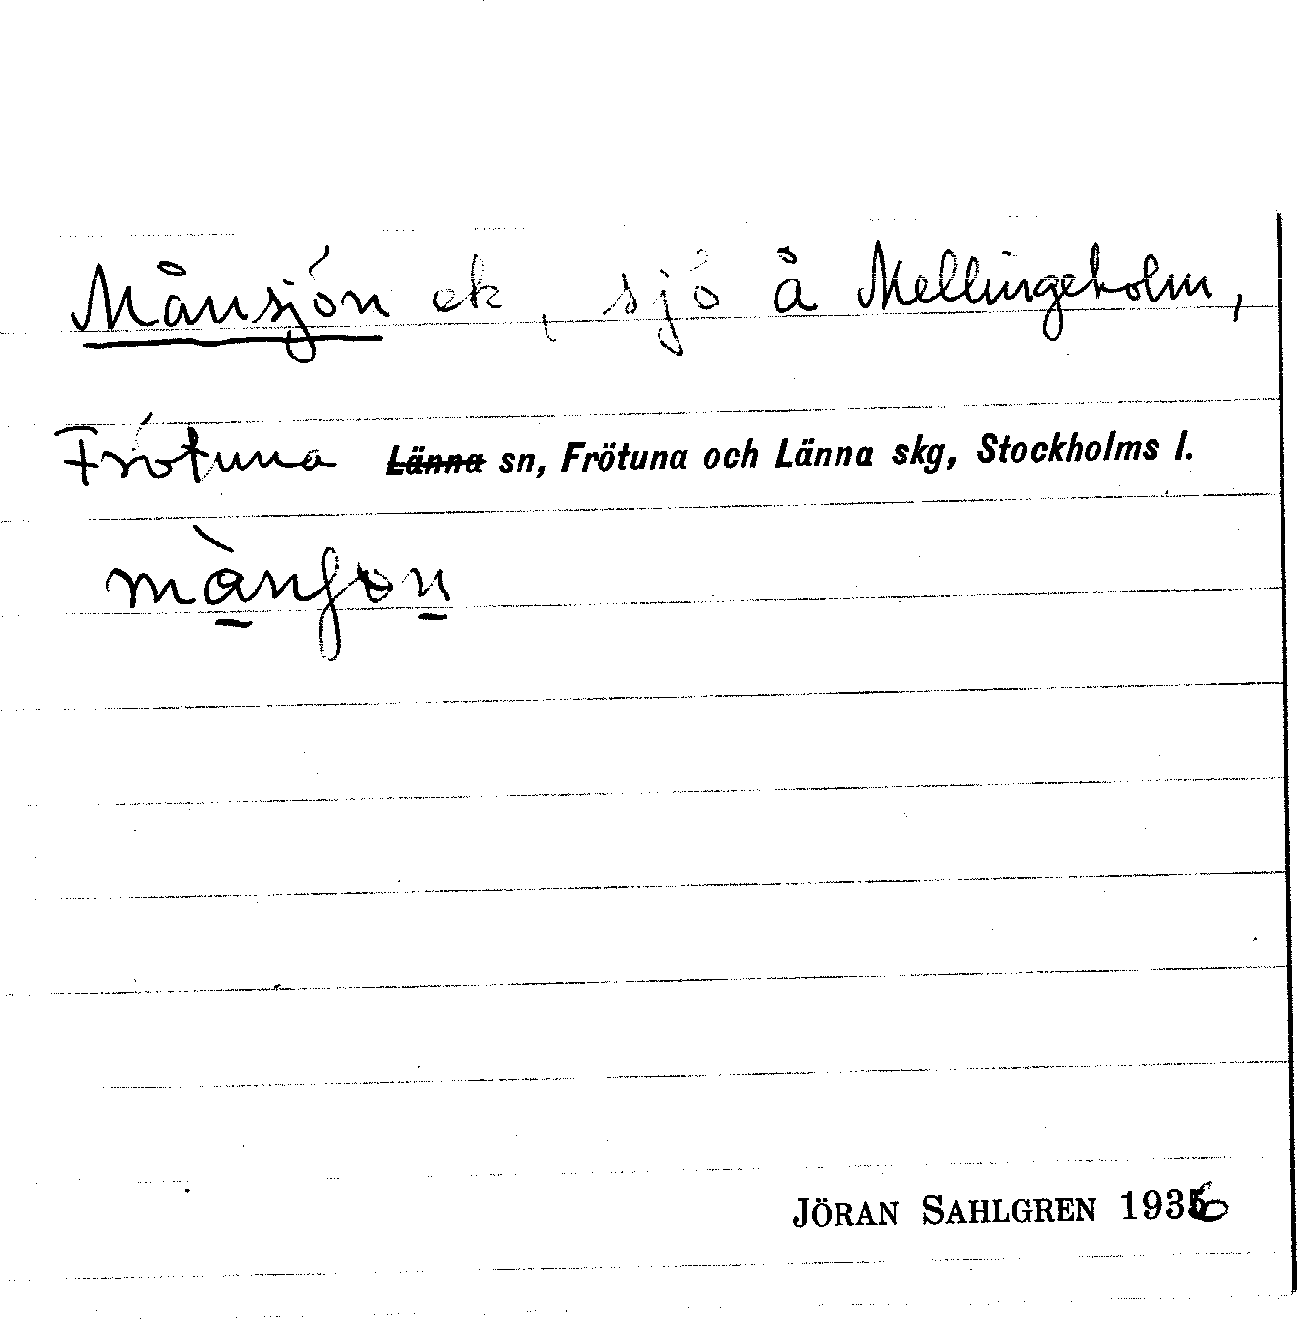 Månsjön ek, sjö å Mellingeholm,
Frötuna Länna sn, Frötuna och Länna skg, Stockholms l.
JÖRAN SAHLGREN 1936